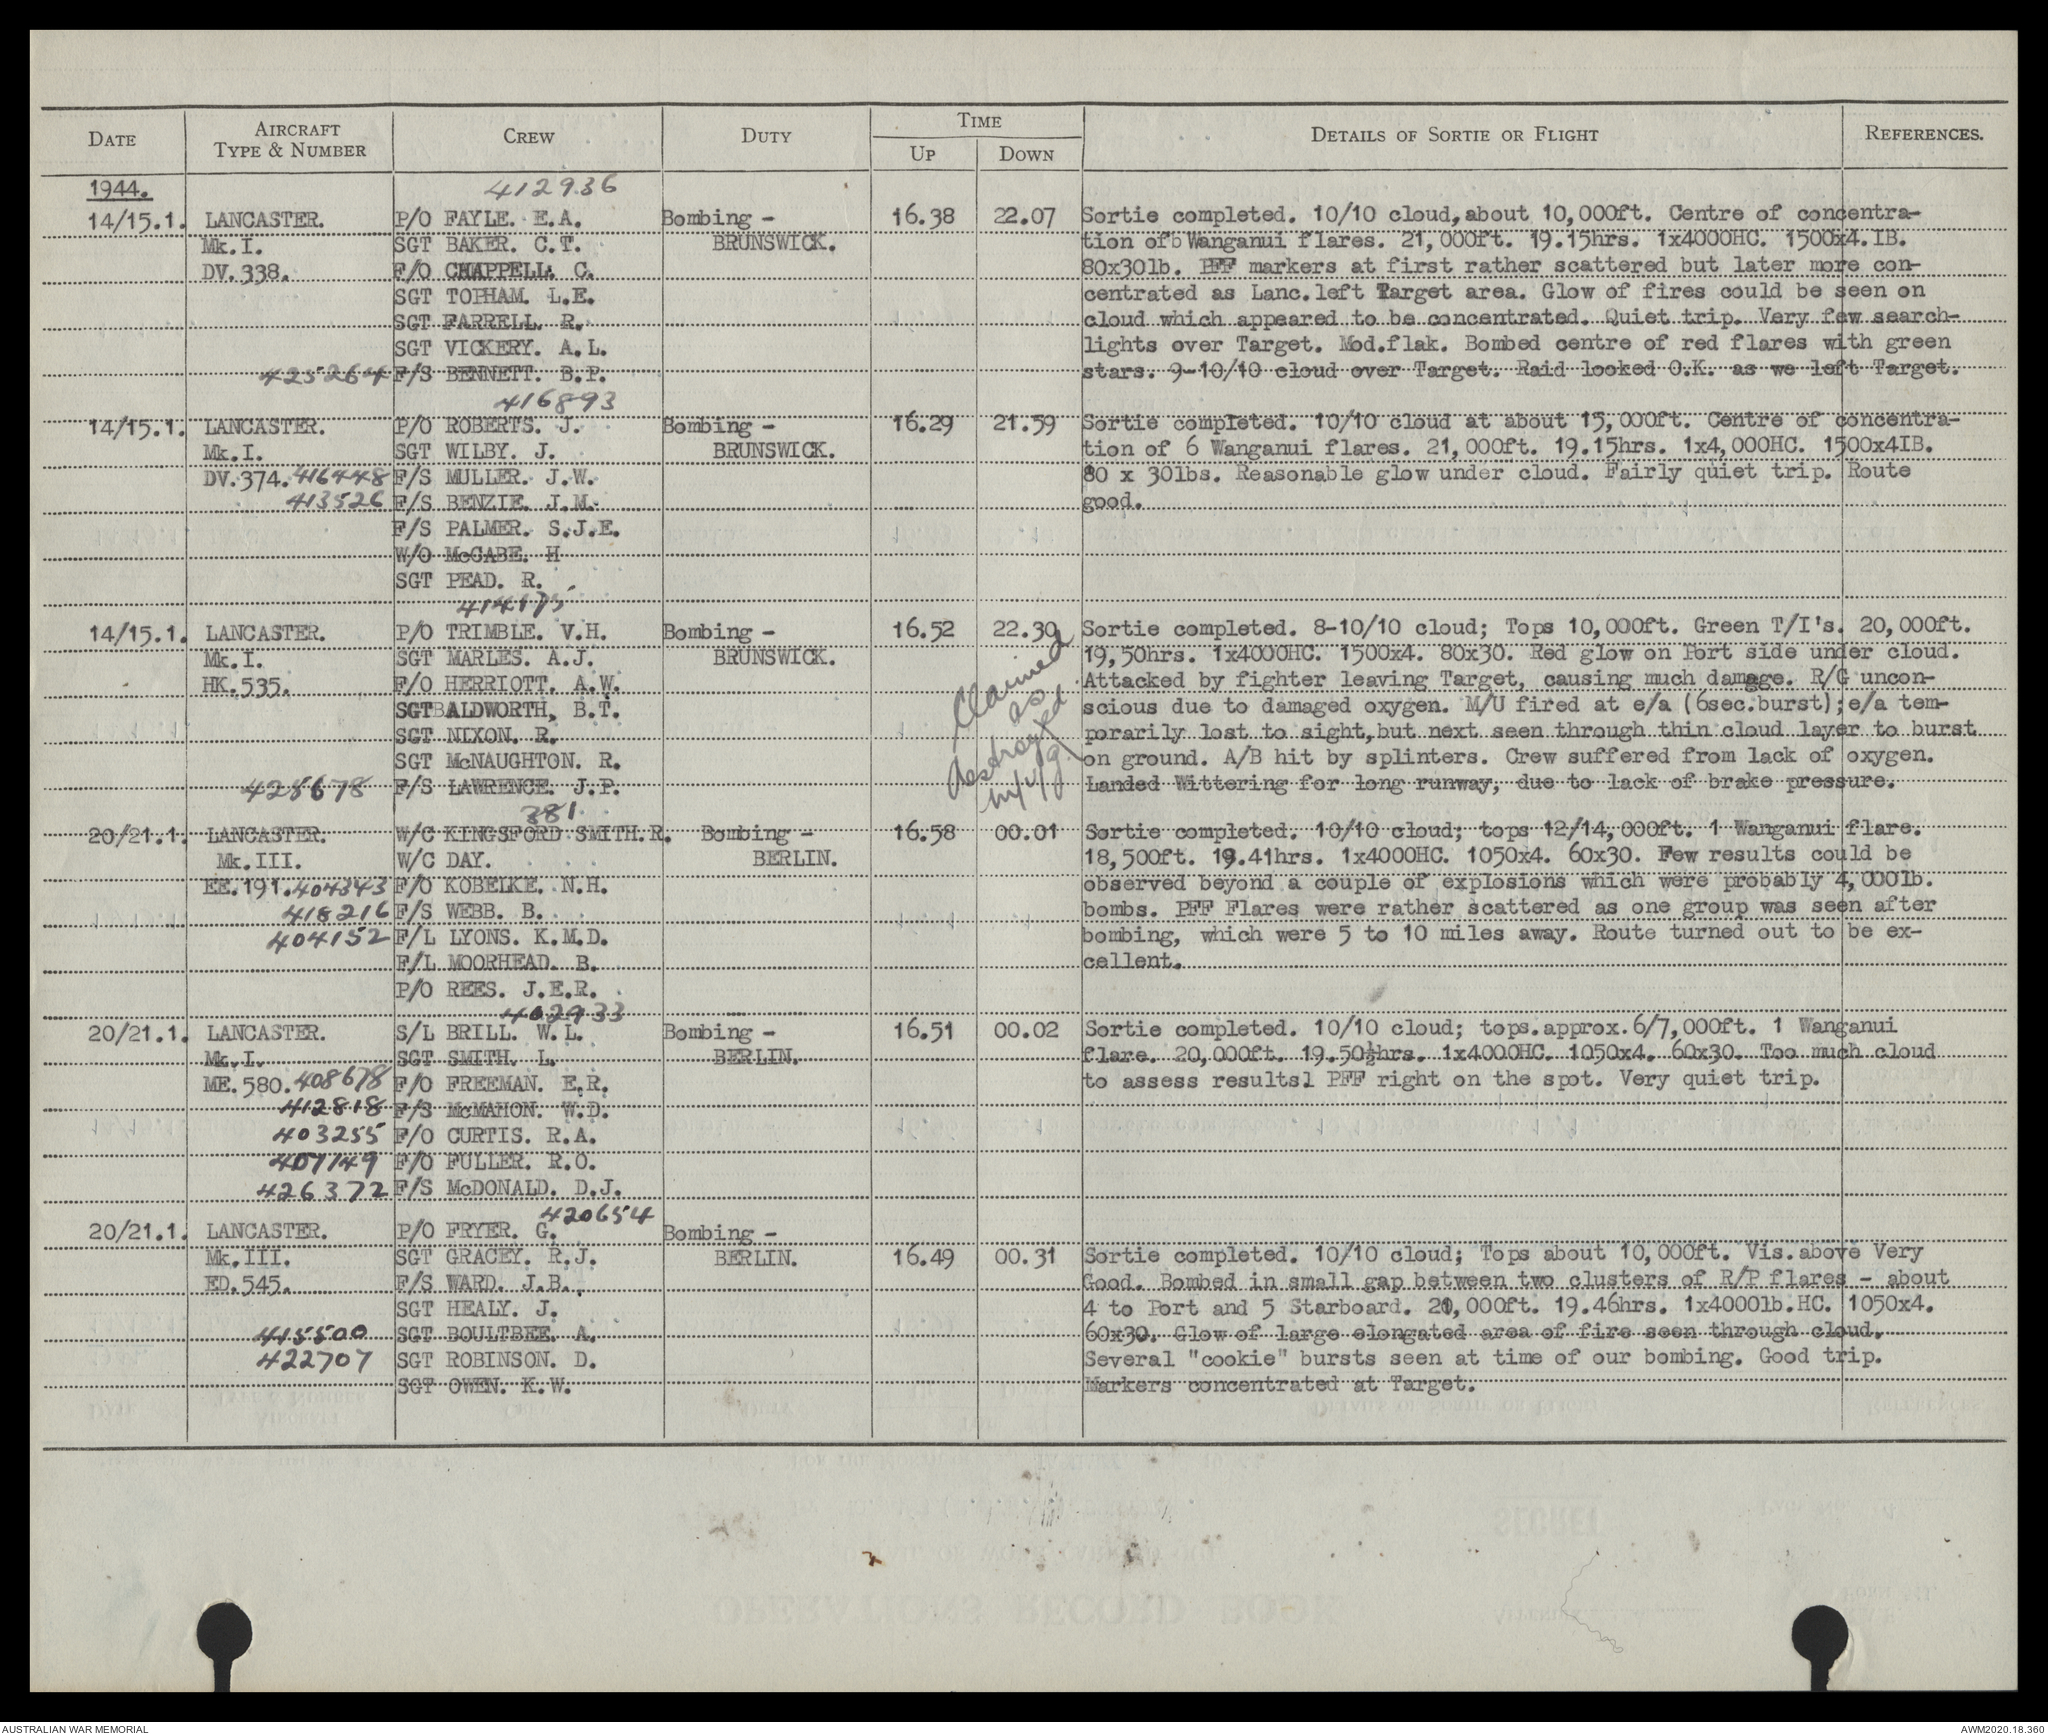 DATE AIRCRAFT TYPE & NUMBER CREW DUTY TIME UP DOWN DETAILS OF SORTIE OR FLIGHT REFERENCES.
1944. 412936
14/15.1. LANCASTER. P/O FAYLE. E.A. Bombing - 16.38 22.07 Sortie completed. 10/10 cloud, about 10,000ft. Centre of concentra-
Mk.I. SGT BAKER. C.T. BRUNSWICK. tion of 6 Wanganui flares. 21,000ft. 19.15hrs. 1x4000HC. 1500x4.IB.
DV.338. F/O CHAPPELL. C. 80x30lb. PFF markers at first rather scattered but later more con-
SGT TOPHAM. L.E. centrated as Lanc. left Target area. Glow of fires could be seen on
SGT FARRELL. R. cloud which appeared to be concentrated. Quiet trip. Very few search-
SGT VICKERY. A.L. lights over Target. Mod.flak. Bombed centre of red flares with green
425264 F/S BENNETT. B.P. stars. 9-10/10 cloud over Target. Raid looked O.K. as we left Target.
416893
14/15.1. LANCASTER. P/O ROBERTS. J. Bombing - 16.29 21.59 Sortie completed. 10/10 cloud at about 15,000ft. Centre of concentra-
Mk.I. SGT WILBY. J. BRUNSWICK. tion of 6 Wanganui flares. 21,000ft. 19.15hrs. 1x4,000HC. 1500x4IB.
DV.374. 416448 F/S MULLER. J.W. 80 x 30lbs. Reasonable glow under cloud. Fairly quiet trip. Route
413526 F/S BENZIE. J.M. good.
F/S PALMER. S.J.E.
W/O McCABE. H
SGT PEAD. R.
414175
14/15.1. LANCASTER. P/O TRIMBLE. V.H. Bombing - 16.52 22.30 Sortie completed. 8-10/10 cloud; Tops 10,000ft. Green T/I's. 20,000ft.
Mk.I. SGT MARLES. A.J. BRUNSWICK. 19,50hrs. 1x4000HC. 1500x4. 80x30. Red glow on Port side under cloud.
HK.535. F/O HERRIOTT. A.W. Claimed Attacked by fighter leaving Target, causing much damage. R/G uncon-
SGTBALDWORTH, B.T. as scious due to damaged oxygen. M/U fired at e/a (6sec.burst); e/a tem-
SGT NIXON. R. destroyed porarily lost to sight, but next seen through thin cloud layer to burst
SGT McNAUGHTON. R. m/u/g on ground. A/B hit by splinters. Crew suffered from lack of oxygen.
425678 F/S LAWRENCE. J.P. Landed Wittering for long runway, due to lack of brake pressure.
381
20/21.1. LANCASTER. W/C KINGSFORD SMITH.R. Bombing - 16.58 00.01 Sortie completed. 10/10 cloud; tops 12/14,000ft. 1 Wanganui flare.
Mk.III. W/C DAY. BERLIN. 18,500ft. 19.41hrs. 1x4000HC. 1050x4. 60x30. Few results could be
EE.191. 404343 F/O KOBELKE. N.H. observed beyond a couple of explosions which were probably 4,000lb.
418216 F/S WEBB. B. bombs. PFF Flares were rather scattered as one group was seen after
404152 F/L LYONS. K.M.D. bombing, which were 5 to 10 miles away. Route turned out to be ex-
F/L MOORHEAD. B. cellent.
P/O REES. J.E.R.
402933
20/21.1. LANCASTER. S/L BRILL. W.L. Bombing - 16.51 00.02 Sortie completed. 10/10 cloud; tops.approx.6/7,000ft. 1 Wanganui
Mk.I. SGT SMITH. L. BERLIN. flare. 20,000ft. 19.50½hrs. 1x4000HC. 1050x4. 60x30. Too much cloud
ME.580. 408678 F/O FREEMAN. E.R. to assess resultsl PFF right on the spot. Very quiet trip.
412818 F/S McMAHON. W.D.
403255 F/O CURTIS. R.A.
407149 F/O FULLER. R.O.
426372 F/S McDONALD. D.J.
420654
20/21.1. LANCASTER. P/O FRYER. G. Bombing -
Mk.III. SGT GRACEY. R.J. BERLIN. 16.49 00.31 Sortie completed. 10/10 cloud; Tops about 10,000ft. Vis.above Very
ED.545. F/S WARD. J.B. Good. Bombed in small gap between two clusters of R/P flares - about
SGT HEALY. J. 4 to Port and 5 Starboard. 20,000ft. 19.46hrs. 1x4000lb.HC. 1050x4.
415500 SGT BOULTBEE. A. 60x30. Glow of large elongated area of fire seen through cloud.
422707 SGT ROBINSON. D. Several "cookie" bursts seen at time of our bombing. Good trip.
SGT OWEN. K.W. Markers concentrated at Target.
AUSTRALIAN WAR MEMORIAL AWM2020.18.360